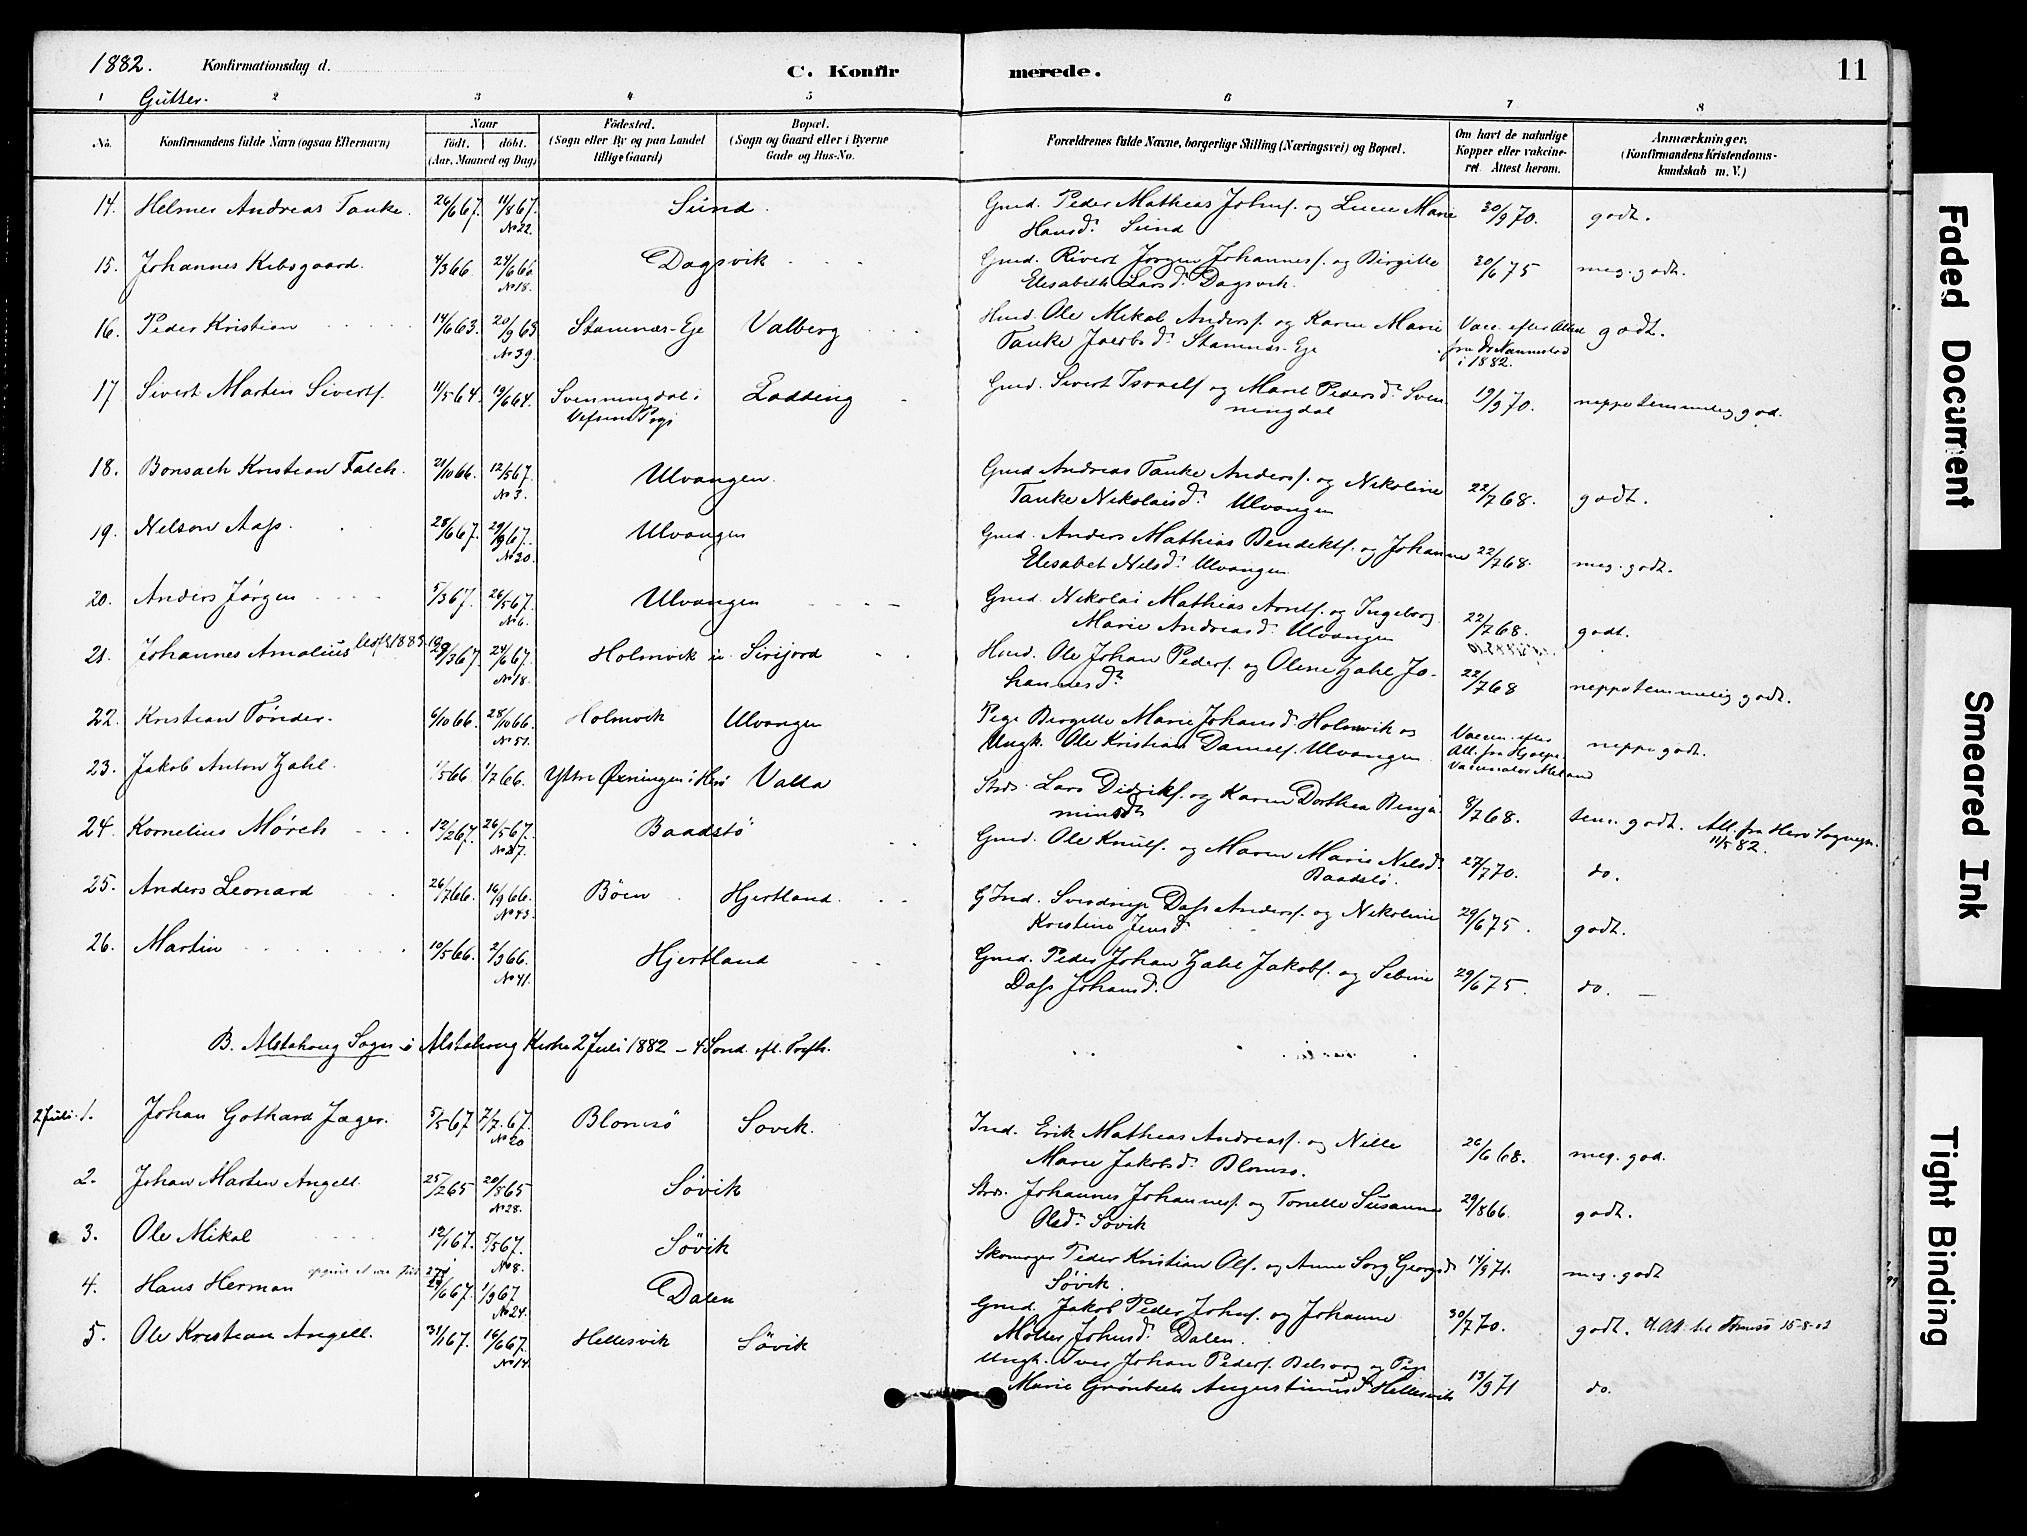 1882. Konfirmationsdag d. C. Konfirmerede. 11
Gutter.
1 2 3 4 5 6 7 8
No. Konfirmandens fulde Navn (ogsaa Efternavn) Naar födt. döbt. (Aar, Maaned og Dag) Födested. (Sogn eller By og paa Landet tillige Gaard) Bopæl. (Sogn og Gaard eller i Byerne Gade og Hus-No. Forældrenes fulde Navne, borgerlige Stilling (Næringsvei) og Bopæl. Om havt de naturlige Kopper eller vakcineret. Attest herom. Anmærkninger. (Konfirmandens Kristendomskundskab m. V.)
14. Helmer Andreas Tanke. 26/6 67. 11/8 67. No 22. Sund. Gmd. Peder Mathias Johns. og Lucie Marie Hansd. Sund 30/9 70. godt.
15. Johannes Kibsgaard. 4/3 66. 24/6 66 No 18. Dagsvik Gmd. Sivert Jørgen Johanness. og Birgitte Elisabeth Larsd. Dagsvik. 30/6 75 meg. godt.
16. Peder Kristian 14/6 63. 20/9 63 No 39. Stamnæs-Eje Valberg Hmd. Ole Mikal Anderss. og Karen Marie Tanke Jacobsd. Stamnæs-Eje Vacc. efter Attest fra Dr i 1882. godt.
17 Sivert Martin Siverts. 11/5 64. 19/6 64. Svenningdal i Vefsens Pgj Lodding Gmd. Sivert Israels og Marit Pedersd. Svenningdal 19/9 70. neppe temmelig god.
18. Bonsach Kristian Falch. 21/10 66. 12/5 67. No 3. Ulvangen. Gmd Andreas Tanke Anders. og Nikoline Tanke Nikolaisd. Ulvangen 22/7 68. godt.
19. Nelson Aas. 28/6 67. 29/9 67. No 30. Ulvangen Gmd. Anders Mathias Bendikts. og Johanne Elisabet Nilsd. Ulvangen 22/7 68. meg. godt.
20. Anders Jørgen 5/3 67. 26/5 67. No 6. Ulvangen Gmd. Nikolai Mathias Arnts. og Ingeborg Marie Andreasd. Ulvangen 22/7 68. godt.
21. Johannes Amalius 29/3 67. 24/6 67. No 18. Holmvik Sirifjord Hmd. Ole Johan Peders. og Oline Zahl Johannesd. 22/7 68 neppe temmelig godt.
22. Kristian Tønder. 6/10 66. 28/10 66. No 51. Holmvik Ulvangen Pige Birgitte Marie Johansd. Holmvik og Ungk. Ole Kristian Daniels. Ulvangen Vaccin. efter Att. fra Hjælpevaccinatør neppe godt.
23. Jakob Anton Zahl. 1/5 66 1/7 66. Ytre Øxningen i Herø Valla Strds. Lars Didriks. og Karen Dorthea Benjaminsd. 8/7 68. tem. godt. Att. fra Herø Sognepr. 11/5 82.
24. Kornelius Mørch 12/2 67. 26/5 67. Baadstö Gmd. Ole Knuts. og Maren Marie Nilsd. Baadstö. 27/7 70. do.
25. Anders Leonard 26/7 66. 16/9 66. No 43. Böen Hjertland. Ind. Sverdrup Dass Anders. og Nikoline Kristine Jensd. 29/6 75. godt.
26. Martin 10/5 66. 2/9 66. No 41. Hjertland Gmd. Peder Johan Zahl Jakobs. og Sebine Dass Johansd. 29/6 75. do.
B. Alstahoug Sogn i Alstahoug Kirke 2 Juli 1882 – 4 Sond. eft. Trefh.
2 Juli. 1. Johan Gothard Jæger. 5/5 67 7/7 67. No 20 Blomsö Søvik. Ind. Erik Mathias Andreass. og Nille Marie Jakobsd. Blomsø. 26/6 68. meg. god.
2. Johan Martin Angell 25/2 65 20/8 65 No 28. Søvik Strds. Johannes Johanness. og Tonette Susanne Olsd. Søvik 29/8 66. godt.
3. Ole Mikal 12/1 67. 5/5 67. No 8. Søvik Skomager Peder Kristian Ols. og Anne Sorg Georgsd Søvik. 14/9 71. meg. godt
4. Hans Herman 29/6 67. 1/9 67 No 24. Dalen Gmd. Jakob Peder Johns. og Johanne Möller Johnsd. Dalen. 30/7 70. godt. Att. til Tromsö 15-8-02
5. Ole Kristian Angell. 31/1 67. 16/6 67. No 14. Hellesvik Søvik Ungk. Iver Johan Peders. Belsvog og Pige Marie Grønbech Augustinusd. Hellesvik 13/9 71 do.
Faded Document
Smeared Ink
Tight Binding